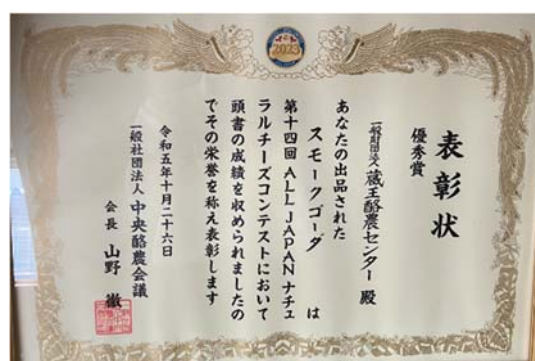 2023
表彰状
優秀賞
一般財団法人 蔵王酪農センター 殿
あなたの出品された
スモークゴーダ は
第十四回 ALL JAPAN ナチュ
ラルチーズコンテストにおいて
頭書の成績を収められましたの
でその栄誉を称え表彰します
令和五年十月二十六日
一般社団法人 中央酪農会議
会長 山野 徹